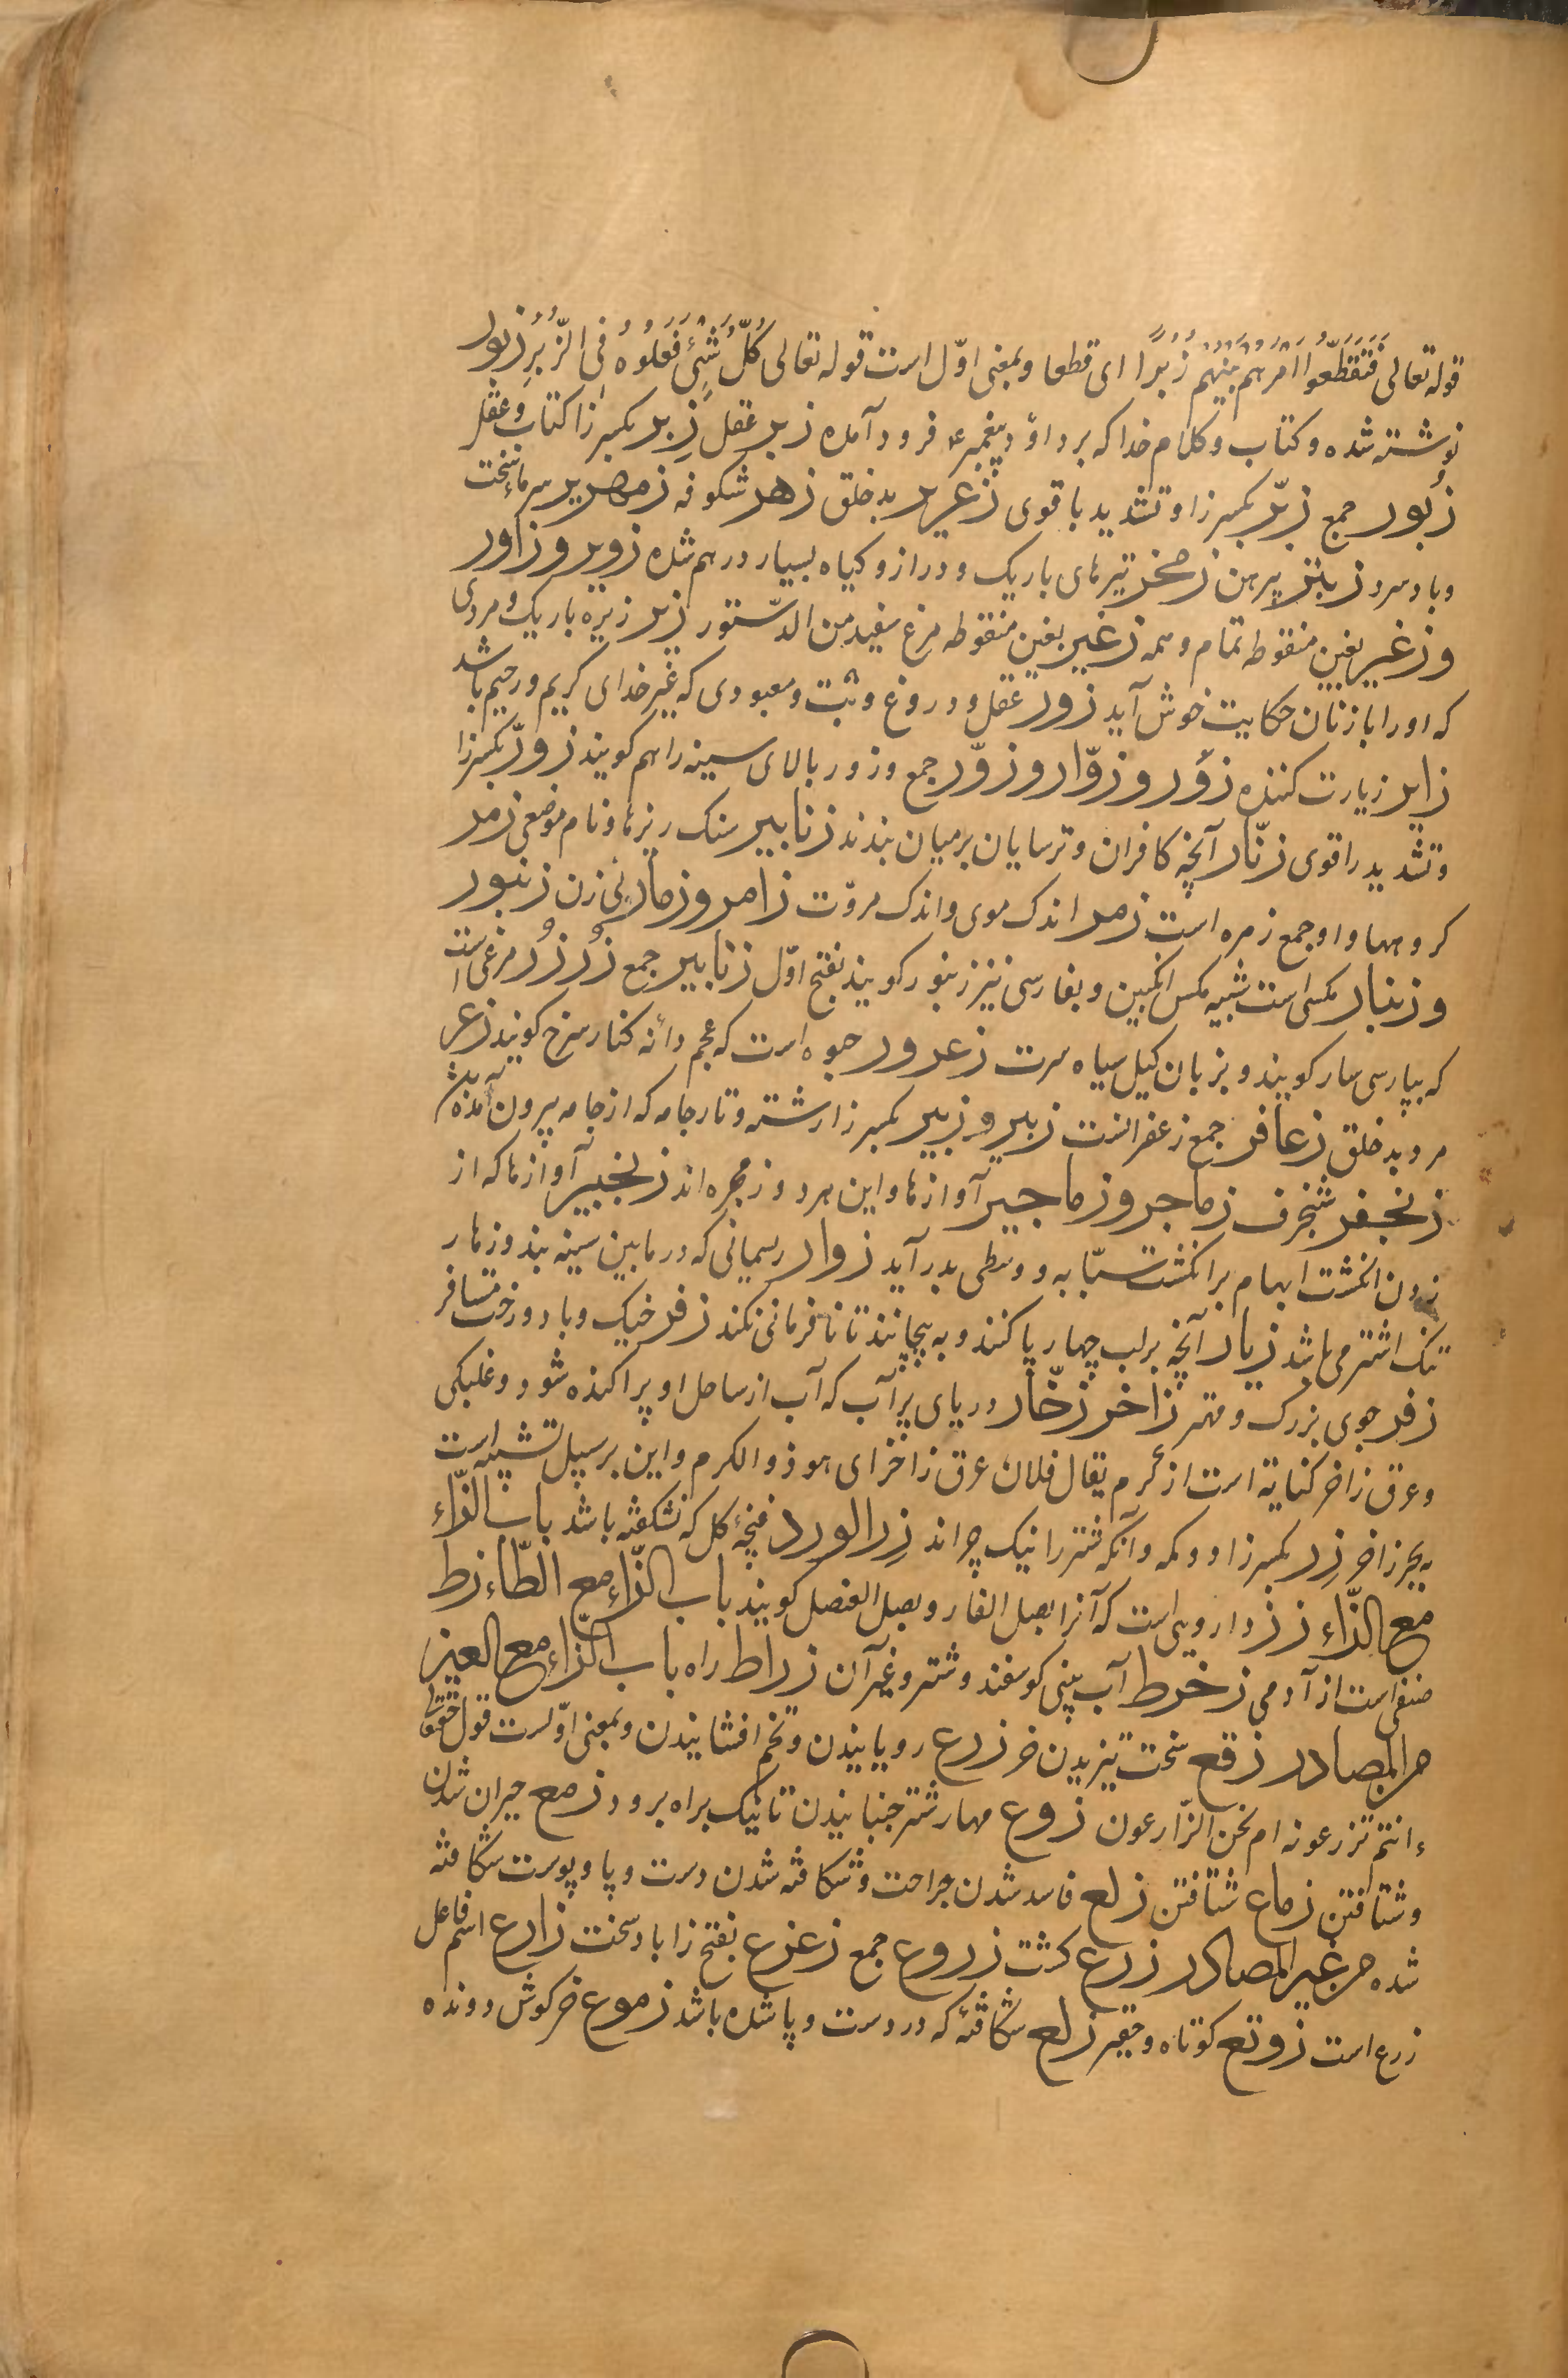 قوله تعالی فَتَقَطَّعُوا اَمْرَهُم بَیْنَهُمْ زُبُرًا ای قطعا و بمعنی اوّل است قوله تعالی کُلُّ شَیْءٍ فَعَلُوهُ فِی الزُّبُرِ زبور
نوشته شده و کتاب و کلام خدا که بر داوُد پیغمبر ع فرود آمده زبر عقل زِبر بکسر زا کتاب و عقل
زُبور جمع زبِرّ بکسر زا و تشدید با قوی زعریر بد خلق زهر شکوفه زمهریر سرمای سخت
و باد سرد زبانر پیرهن زمخر تیرهای باریک و دراز و کیاه بسیار درهم شده زوبر و زاور
و زغیر بغین منقوطه تمام و همه زغیر بغین منقوطه مرغ سفید من الدّستور زیر زیره باریک و مردی
که او را با زنان حکایت خوش آید زور عقل و دروغ و بُت و معبودی که غیر خدای کریم و رحیم باشد
زایر زیارت کننده زؤر و زوّار و زوّر جمع و زور بالای سینه را هم کویند زورّ بکسر زا
و تشدید را قوی زنّار آنچه کافران و ترسایان بر میان بندند زنابیر سنک ریزها و نام موضعی زمر
کروهها و او جمع زمره است زمر اندک موی و اندک مروّت زامر و زمار نی زن زنبور
و زنبار مکسی است شبیه مکس انکبین و بفارسی نیز زنبور کویند بفتح اوّل زنابیر جمع زُرزُر مرغی است
که بپارسی سار کویند و بزبان کیل سیاه سرت زعرور میوه است که عجم دانه کنار سرخ کویند زعر
مرد بد خلق زعافر جمع زعفرانست زبیر و زبیر بکسر زا رشته و تار جامه که از جامه بیرون آمده
زنجفر شنجرف زماجر و زماجیر آوازها و این هر دو زمجره اند زنجیر آوازها که از
زدن انکشت ابهام بر انکشت سبّابه و وسطی بدر آید زوار ریسمانی که در مابین سینه بند و زهار
تنک اشتر می باشد زیار آنچه بر لب چهارپا کنند و به پیچانند تا نافرمانی نکند زفر خیک و بار و رخت مسافر
زفر جوی بزرک و مهتر زاخر زخّار دریای پر آب که آب از ساحل او پراکنده شود و غلبکی
و عرق زاخر کنایه است از کرم یقال فلان عرق زاخر ای هو ذو الکرم و این بر سبیل تشبیه است
به بحر زاخر زِر بکسر زا دوکمه و آنکه شتر را نیک چراند زِر الورد غنچهٔ کل که نشکفته باشد باب الزّاء
مع الزّاء زز داروییست که آنرا بصل الفار و بصل العنصل کویند باب الزّاء مع الطّاء زط
صنفی است از آدمی زخرط آب بینی کوسفند و شتر و غیر آن زراط راه باب الزّاء مع العین
من المصادر زقع سخت تیزیدن خر زرع رویانیدن و تخم افشانیدن و بمعنی اوّلست قول حقتعالی
ءانتم تزرعونه ام نحن الزّارعون زوع مهار شتر جنبانیدن تا نیک براه برود زمع حیران شدن
و شتافتن زماع شتافتن زلع فاسد شدن جراحت و شکافته شدن دست و پا و پوست شکافته
شده من غیر المصادر زرع کشت زروع جمع زعزع بفتح زا باد سخت زارع اسم فاعل
زرع است زوتع کوتاه و حقیر زلع شکافته که در دست و پا شده باشد زموع خرکوش دونده